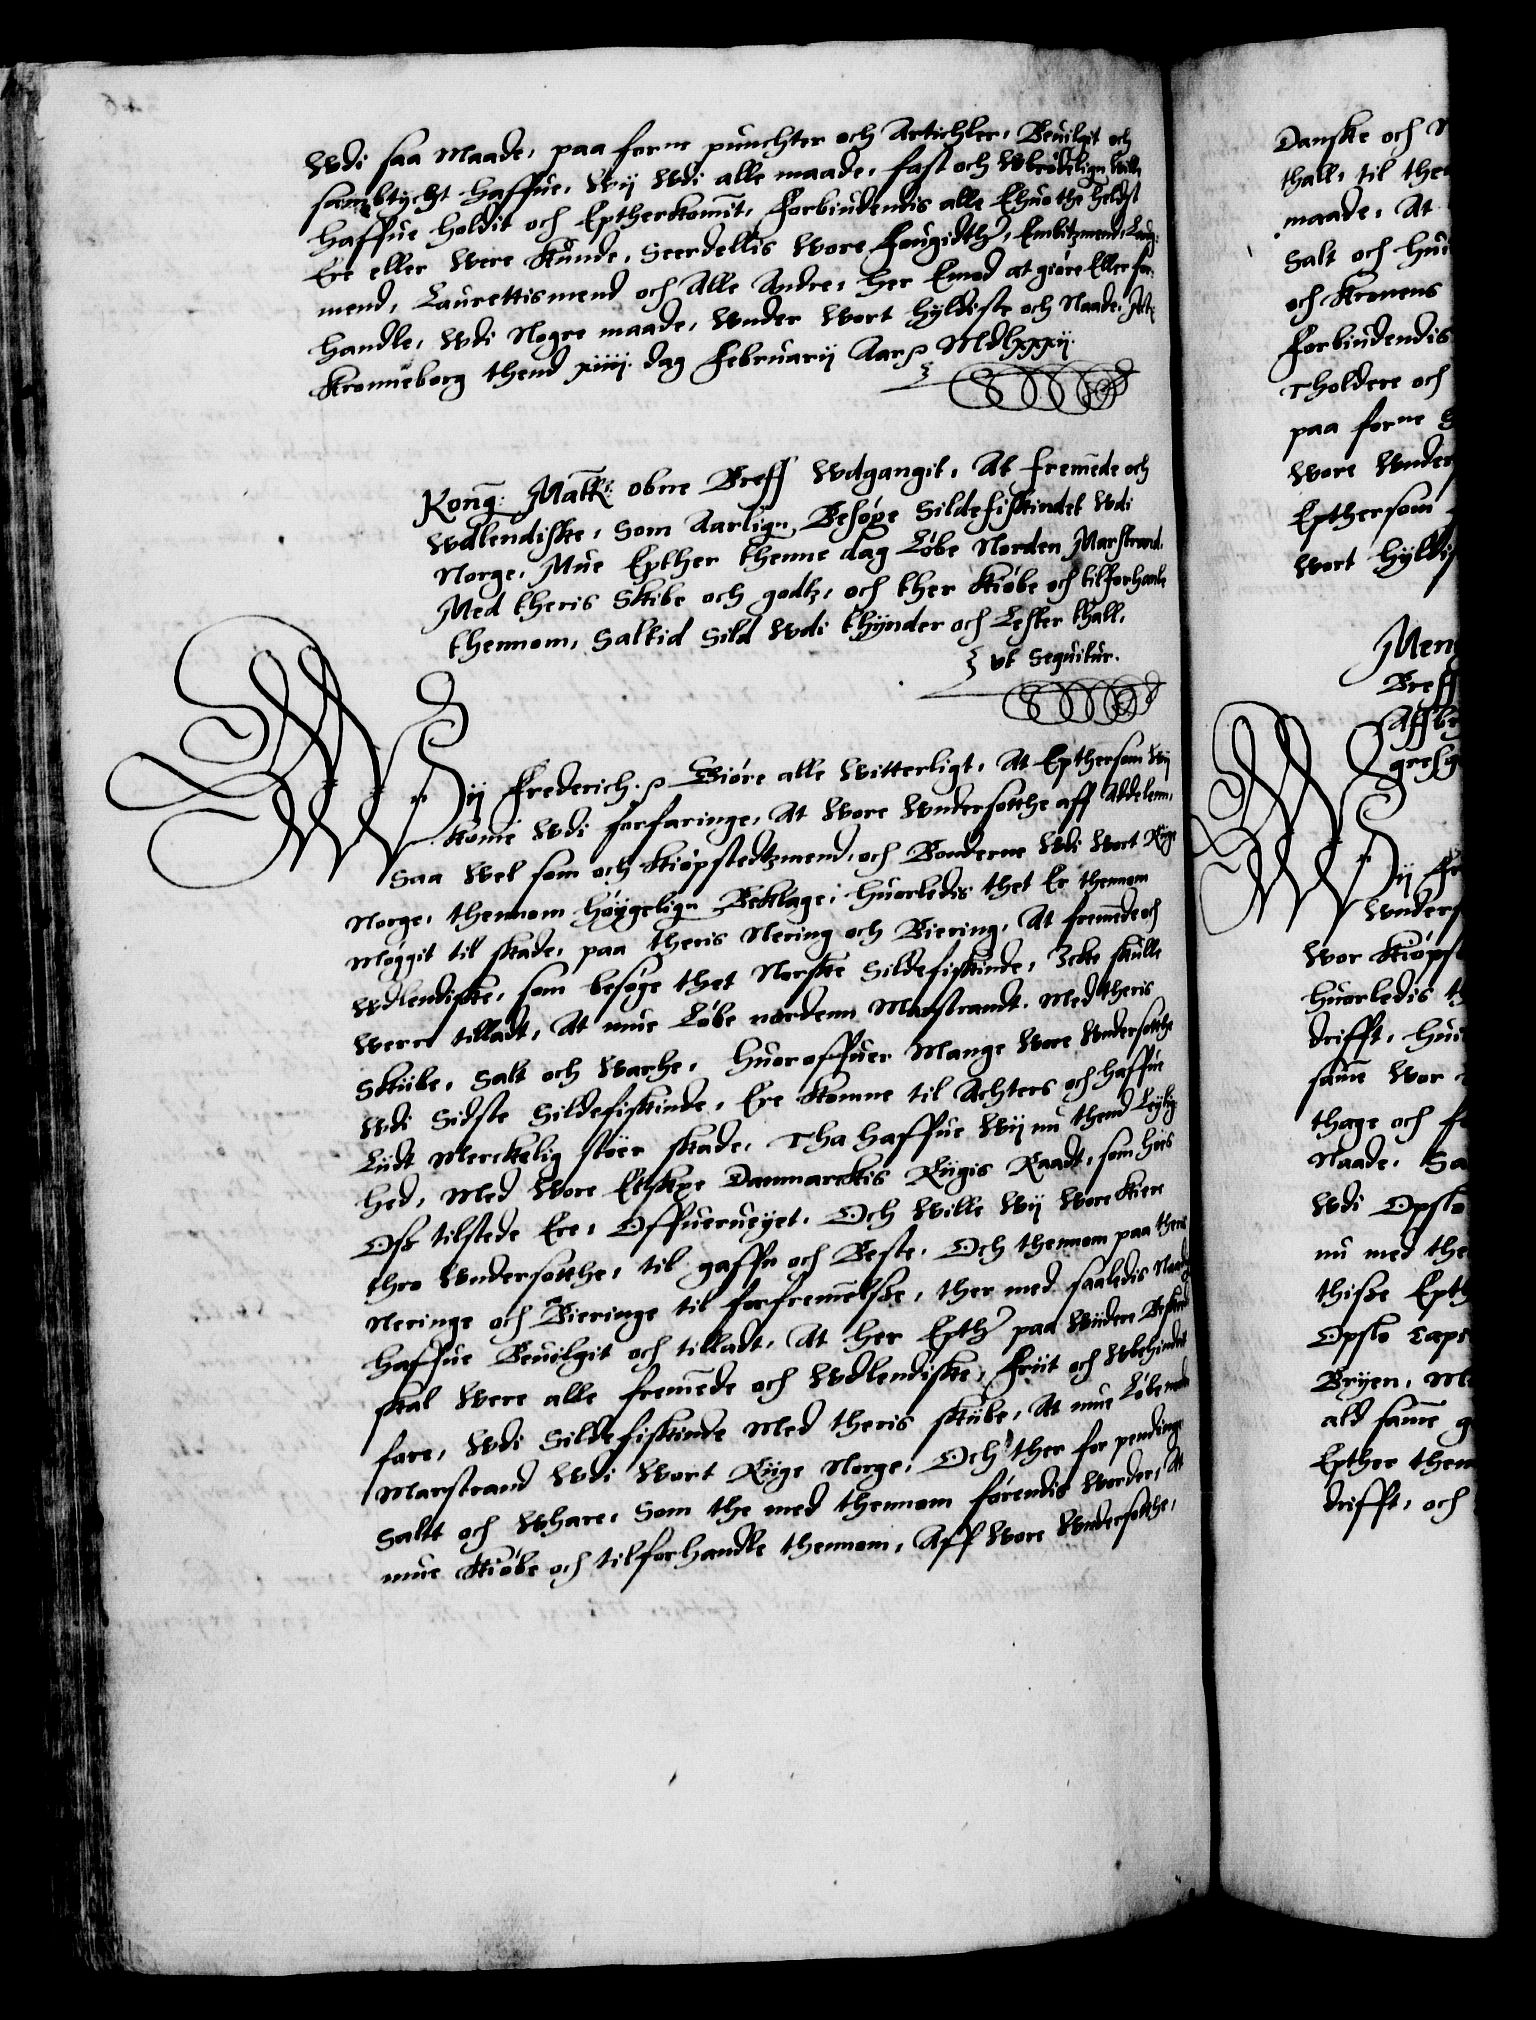 Wdi saa Maade, paa forne punchter och Artichler, Beuilgit och
sambtycht haffue, Wij Wdi alle maade, fast och Wbrødelign Wille
haffue holdit och Eptherkomit, Forbiudendis alle Ehuo the helst
Ere eller Were Kunde, Seerdellis Wore Fougidther, Embitzmend, Laug-
mend, Laurettismend och Alle Andre, her Emod at giøre Eller for-
handle, Wdi Nogre maade, Wnder Wort hyldiste och Naade,
Kronneborg thend xiiij dag Februarij Aar MDlxxxij.
Kong: Matts: obne Breff Wdgangit, At fremede och
Wdlendiske, som Aarlign Besøge Sildefiskindet Wdi
Norge, Mue Epther thenne dag Løbe Norden Marstrand,
Med theris Skibe och godtz, och ther Kiøbe och tilforhanle
thennom, Saltid Sild Wdi thynder och Lester thall,
vt Sequitur.
Wij Frederich. Giøre alle Witterligt, At Epthersom Wij
Kome Wdi forfaringe, At Wore Wndersotthe aff Addelenn,
Saa Wel som och Kiøpstedtzmend, och Bønderne Wdi Wort Rige
Norge, thennom høygelign Beklage, huorledis thet Er thennom
Møggit til skade, paa theris Nering och Biering, At fremede och
Wdlendiske, som besøge thet Norske Sildefiskinde, Icke skulle
Were tilladt, At mue Løbe nordenn Marstrandt, Med theris
Skiibe, Salt och Warhe, huoroffuer Mange Wore Wndersotthe
Wdi Sidste Sildefiskinde, Ere Komne til Achters och haffue
Lidt Merckelig stoer skade, Tha haffue Wij nu thend Leylig-
hed, Med Wore Elskpe Danmarckis Riigis Raadt, som hoes
Oss tilstede Ere, Offuerueyet, Och Wille Wij Wore Kiere
thro Wndersotthe, til gaffn och Beste, Och thennom paa theris
Neringe och Bieringe til forfremelse, ther med saaledis Naadigst
haffue Beuilgit och tilladt, At her Epther paa Widere Besked
skal Were alle fremede och Wdlendiske, Friit och Wbehindrit
fare, Wdi Sildefiskinde Med theris skiibe, At mue Løbe norden
Marstrand Wdi Wort Riige Norge, Och ther for pendinge
Saltt och Whare, Som the med thennom førendis Worder, At
mue Kiøbe och tilforhandle thennom, Aff Wore Wndersotthe,
Danske och
thall, til
maade, At
Salt och
och Kronens
Forbiudendis
Tholdere och
paa forne
Wore Wnder
Epthersom
Wort hyldis
Breff
Wij Fr
Wnders
Wor Kiøpst
huorledis
drifft,
same Wor
thage och
Naade, Sa
Wdi Opslo
nu med the
thisse Epth
Opslo Capi
Bryen,
ald same
Epther then
drifft, och